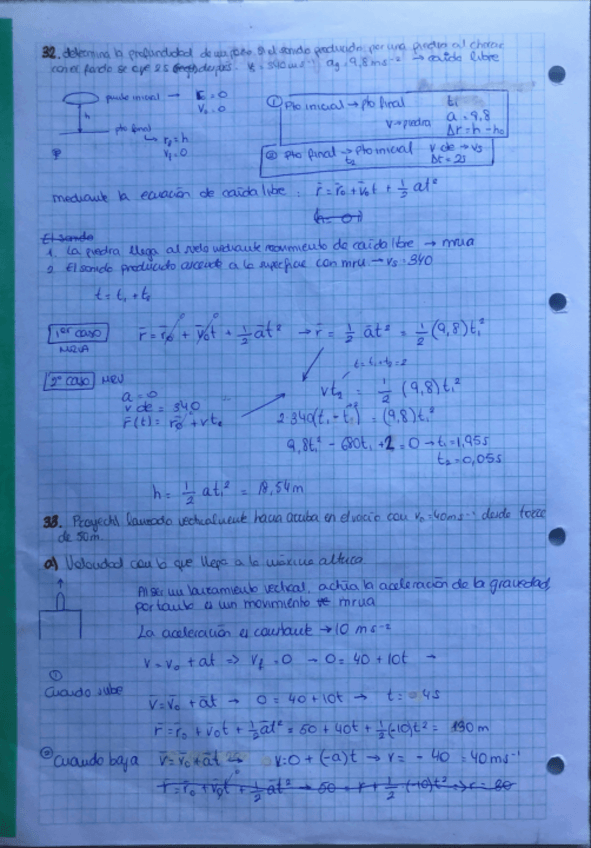 32. determina la profundidad de un pozo si el sonido producido por una piedra al chocar
con el fondo se oye 2s después. Vs = 340 ms⁻¹ ag = 9,8 ms⁻² → caída libre
punto inicial → = 0
V₀ = 0
h
pto final
↳ r_f = h
v_f = 0
① Pto inicial → pto final t₁
V → piedra a = 9,8
Δr = h - h₀
② Pto final → Pto inicial v de → vs
t₂ Δt = 2s
mediante la ecuación de caída libre: r̄ = r̄₀ + v̄₀t + 1/2 at²
El sonido
1. La piedra llega al suelo mediante movimiento de caída libre → mrua
2. El sonido producido asciende a la superficie con mru → vs = 340
t = t₁ + t₂
1er caso r̄ = r̄₀ + v̄₀t + 1/2 āt² → r̄ = 1/2 āt² = 1/2 (9,8)t₁²
MRUA
t = t₁ + t₂ = 2
2º caso MRU vt₂ = 1/2 (9,8)t₁²
a = 0
v de = 340
r̄(t) = r̄₀ + vt₂
= (9,8)t₁²
9,8t₁² - 680t₁ + 2 = 0 → t₁ = 1,95s
t₂ = 0,05s
h = 1/2 at₁² = 18,54 m
33. Proyectil lanzado verticalmente hacia arriba en el vacío con v₀ = 40 ms⁻¹ desde torre
de 50m.
a) Velocidad con la que llega a la máxima altura.
Al ser un lanzamiento vertical, actúa la aceleración de la gravedad,
por tanto es un movimiento mrua
La aceleración es constante → 10 ms⁻²
v = v₀ + at ⇒ v_f = 0 → 0 = 40 + 10t →
①
Cuando sube v̄ = v̄₀ + āt → 0 = 40 + 10t → t = 4s
r̄ = r̄₀ + v̄₀t + 1/2 āt² = 50 + 40t + 1/2 (-10)t² = 130 m
② Cuando baja v̄ = v̄₀ + āt → v = 0 + (-a)t → v = - 40 = 40 ms⁻¹
r̄ = r̄₀ + v̄₀t + 1/2 āt² → 50 = r + 1/2 (-10)t² ⇒ r = 80